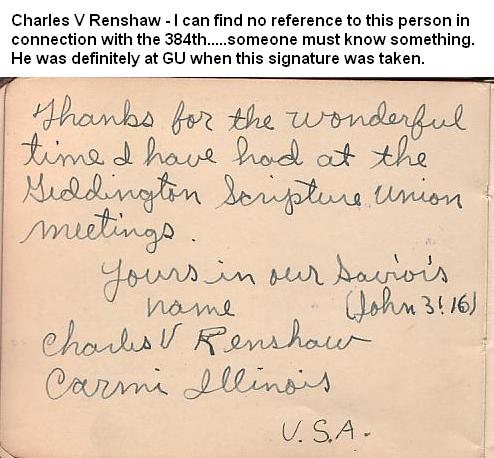 Charles V Renshaw - I can find no reference to this person in
connection with the 384th.....someone must know something.
He was definitely at GU when this signature was taken.
Thanks for the wonderful
time I have had at the
Geddington Scripture Union
meetings.
Yours in our Savior's
name (John 3:16)
Charles V Renshaw
Carmi Illinois
U.S.A.